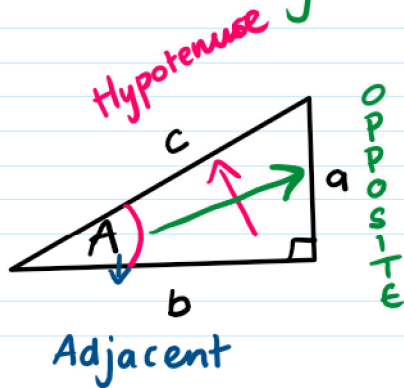 Hypotenuse
c
OPPOSITE
a
A
b
Adjacent